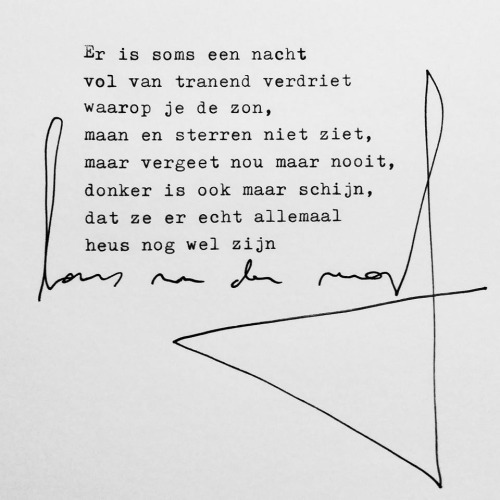 Er is soms een nacht
vol van tranend verdriet
waarop je de zon,
maan en sterren niet ziet,
maar vergeet nou maar nooit,
donker is ook maar schijn,
dat ze er echt allemaal
heus nog wel zijn